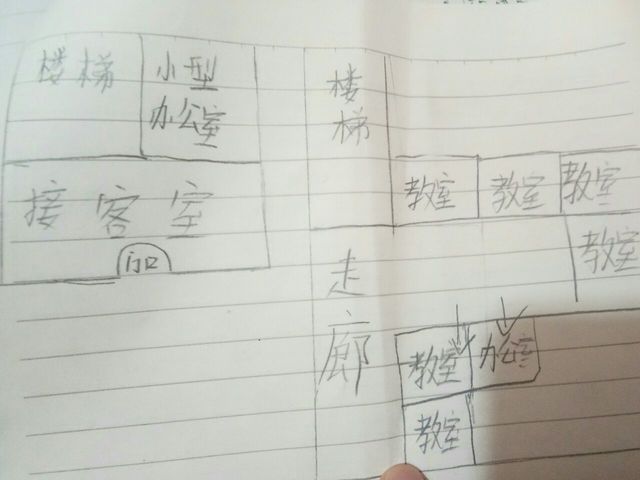 楼梯
小型
办公室
接客室
门口
楼梯
教室
教室
教室
教室
走廊
教室
办公室
教室